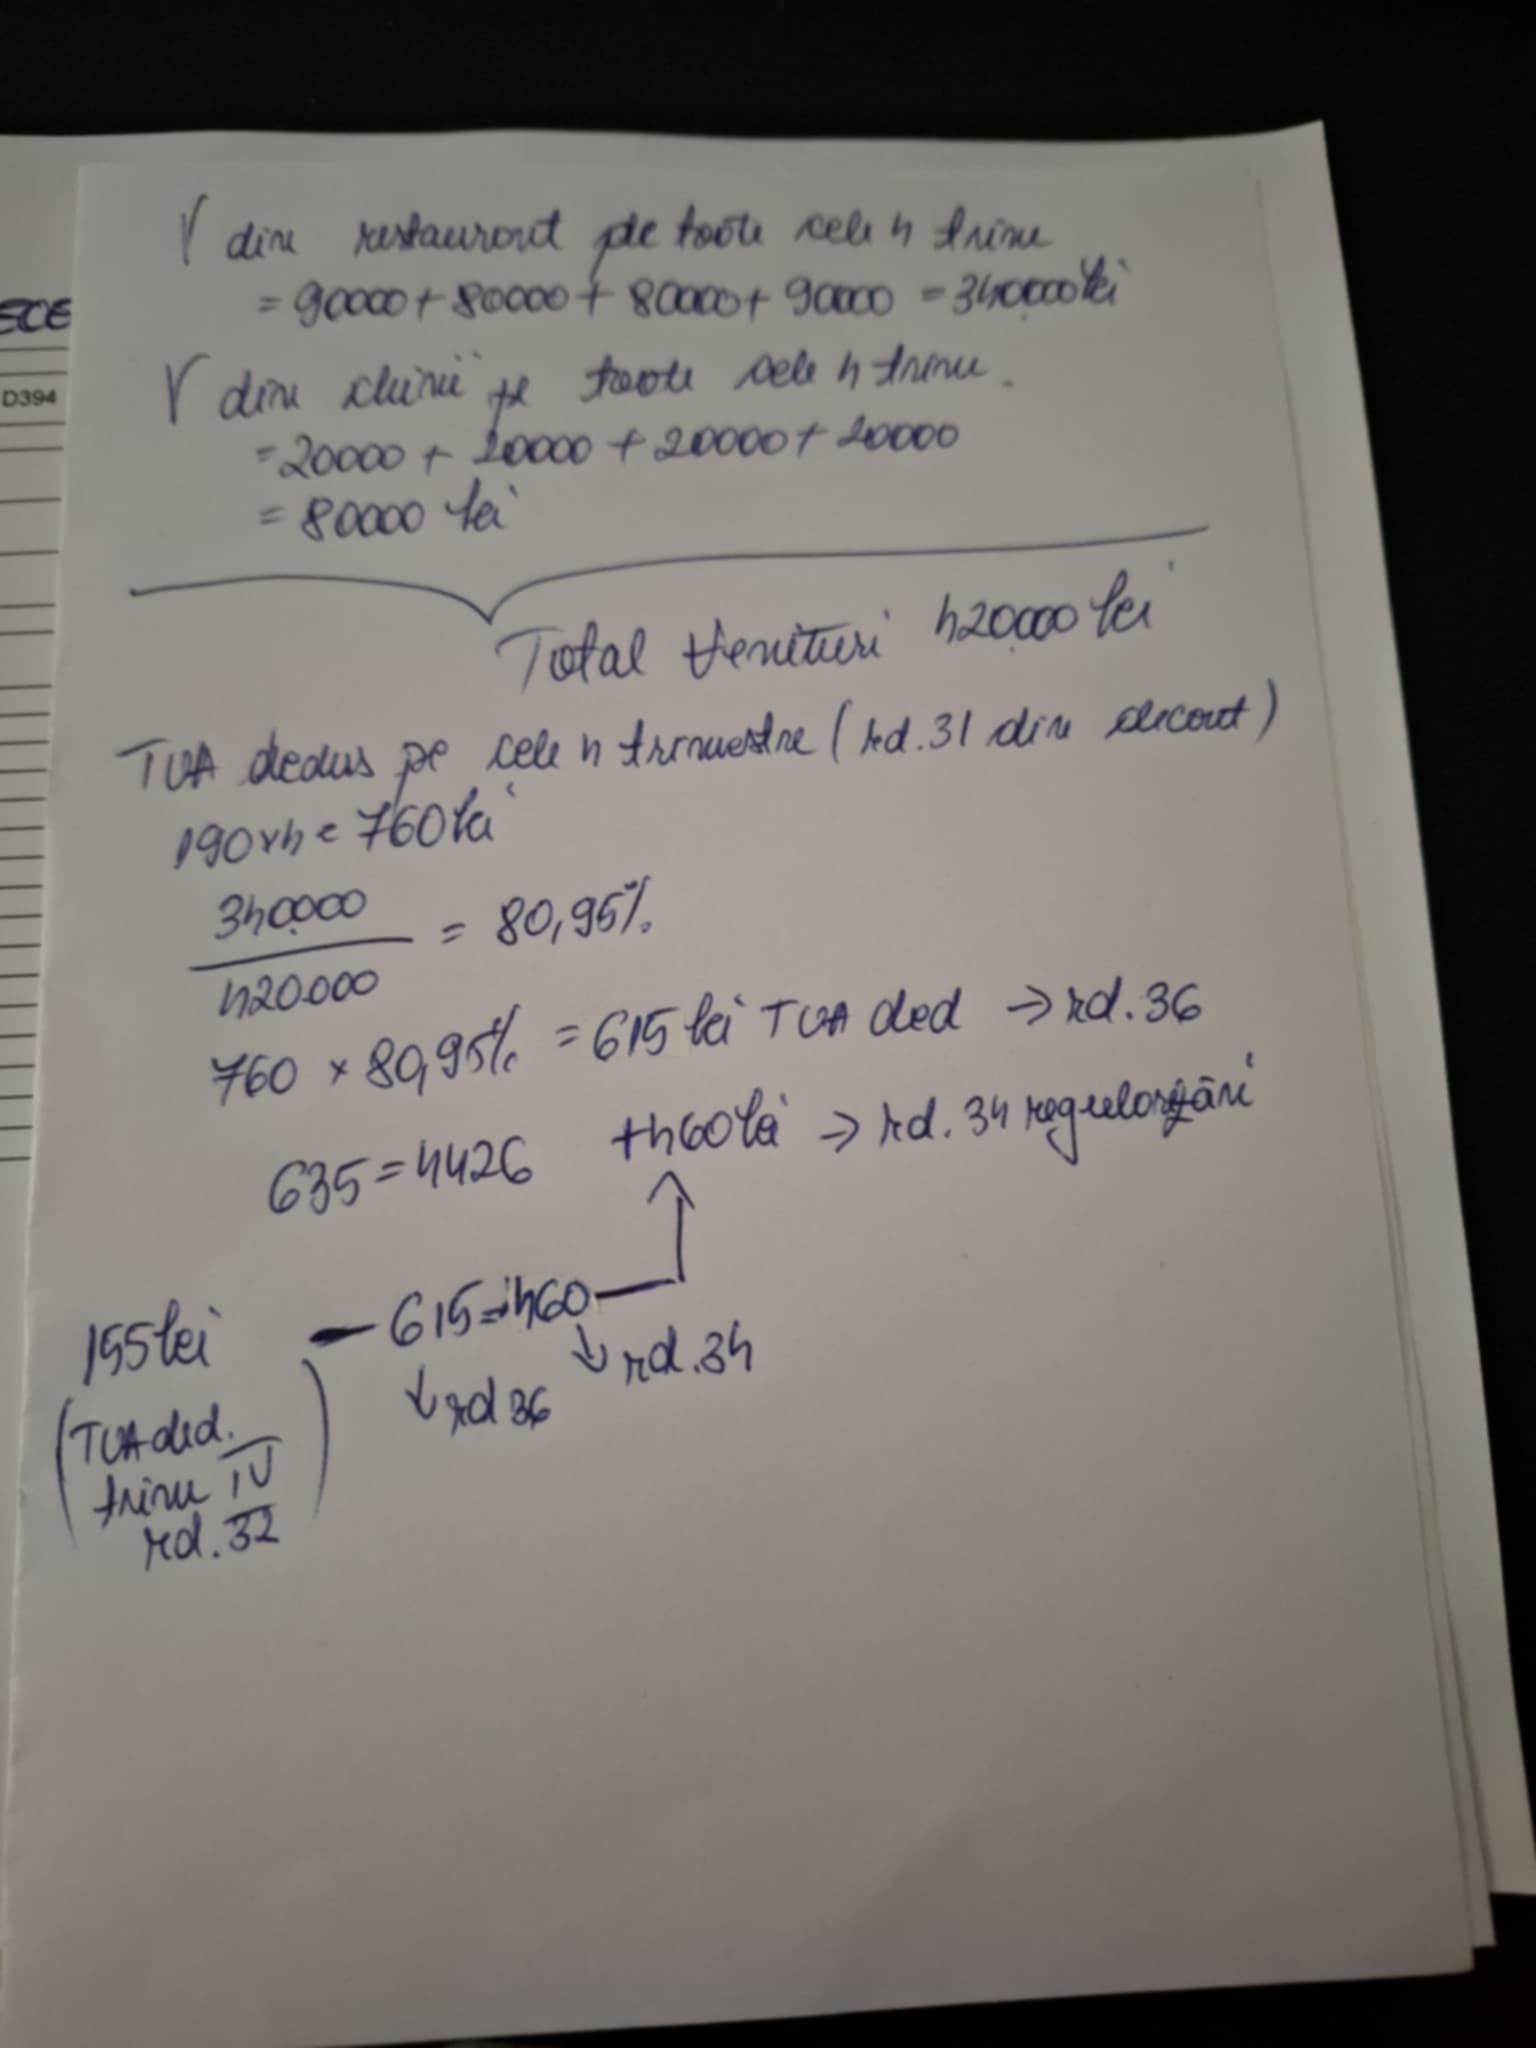 ECE
D394
V din restaurant pe toate cele 4 trim
= 90000 + 80000 + 80000 + 90000 = 340.000 lei
V din chirii pe toate cele 4 trim.
= 20000 + 20000 + 20000 + 20000
= 80000 lei
Total Venituri 420.000 lei
TVA dedus pe cele 4 trimestre (rd.31 din decont)
190x4 = 760 lei
340.000
= 80,95%
420.000
760 x 80,95% = 615 lei TVA ded → rd.36
635 = 4426 +460 lei → rd.34 regularizări
155 lei — 615 = 460
↓ rd 36 ↓ rd.34
(TVA ded.
trim IV
rd.32)